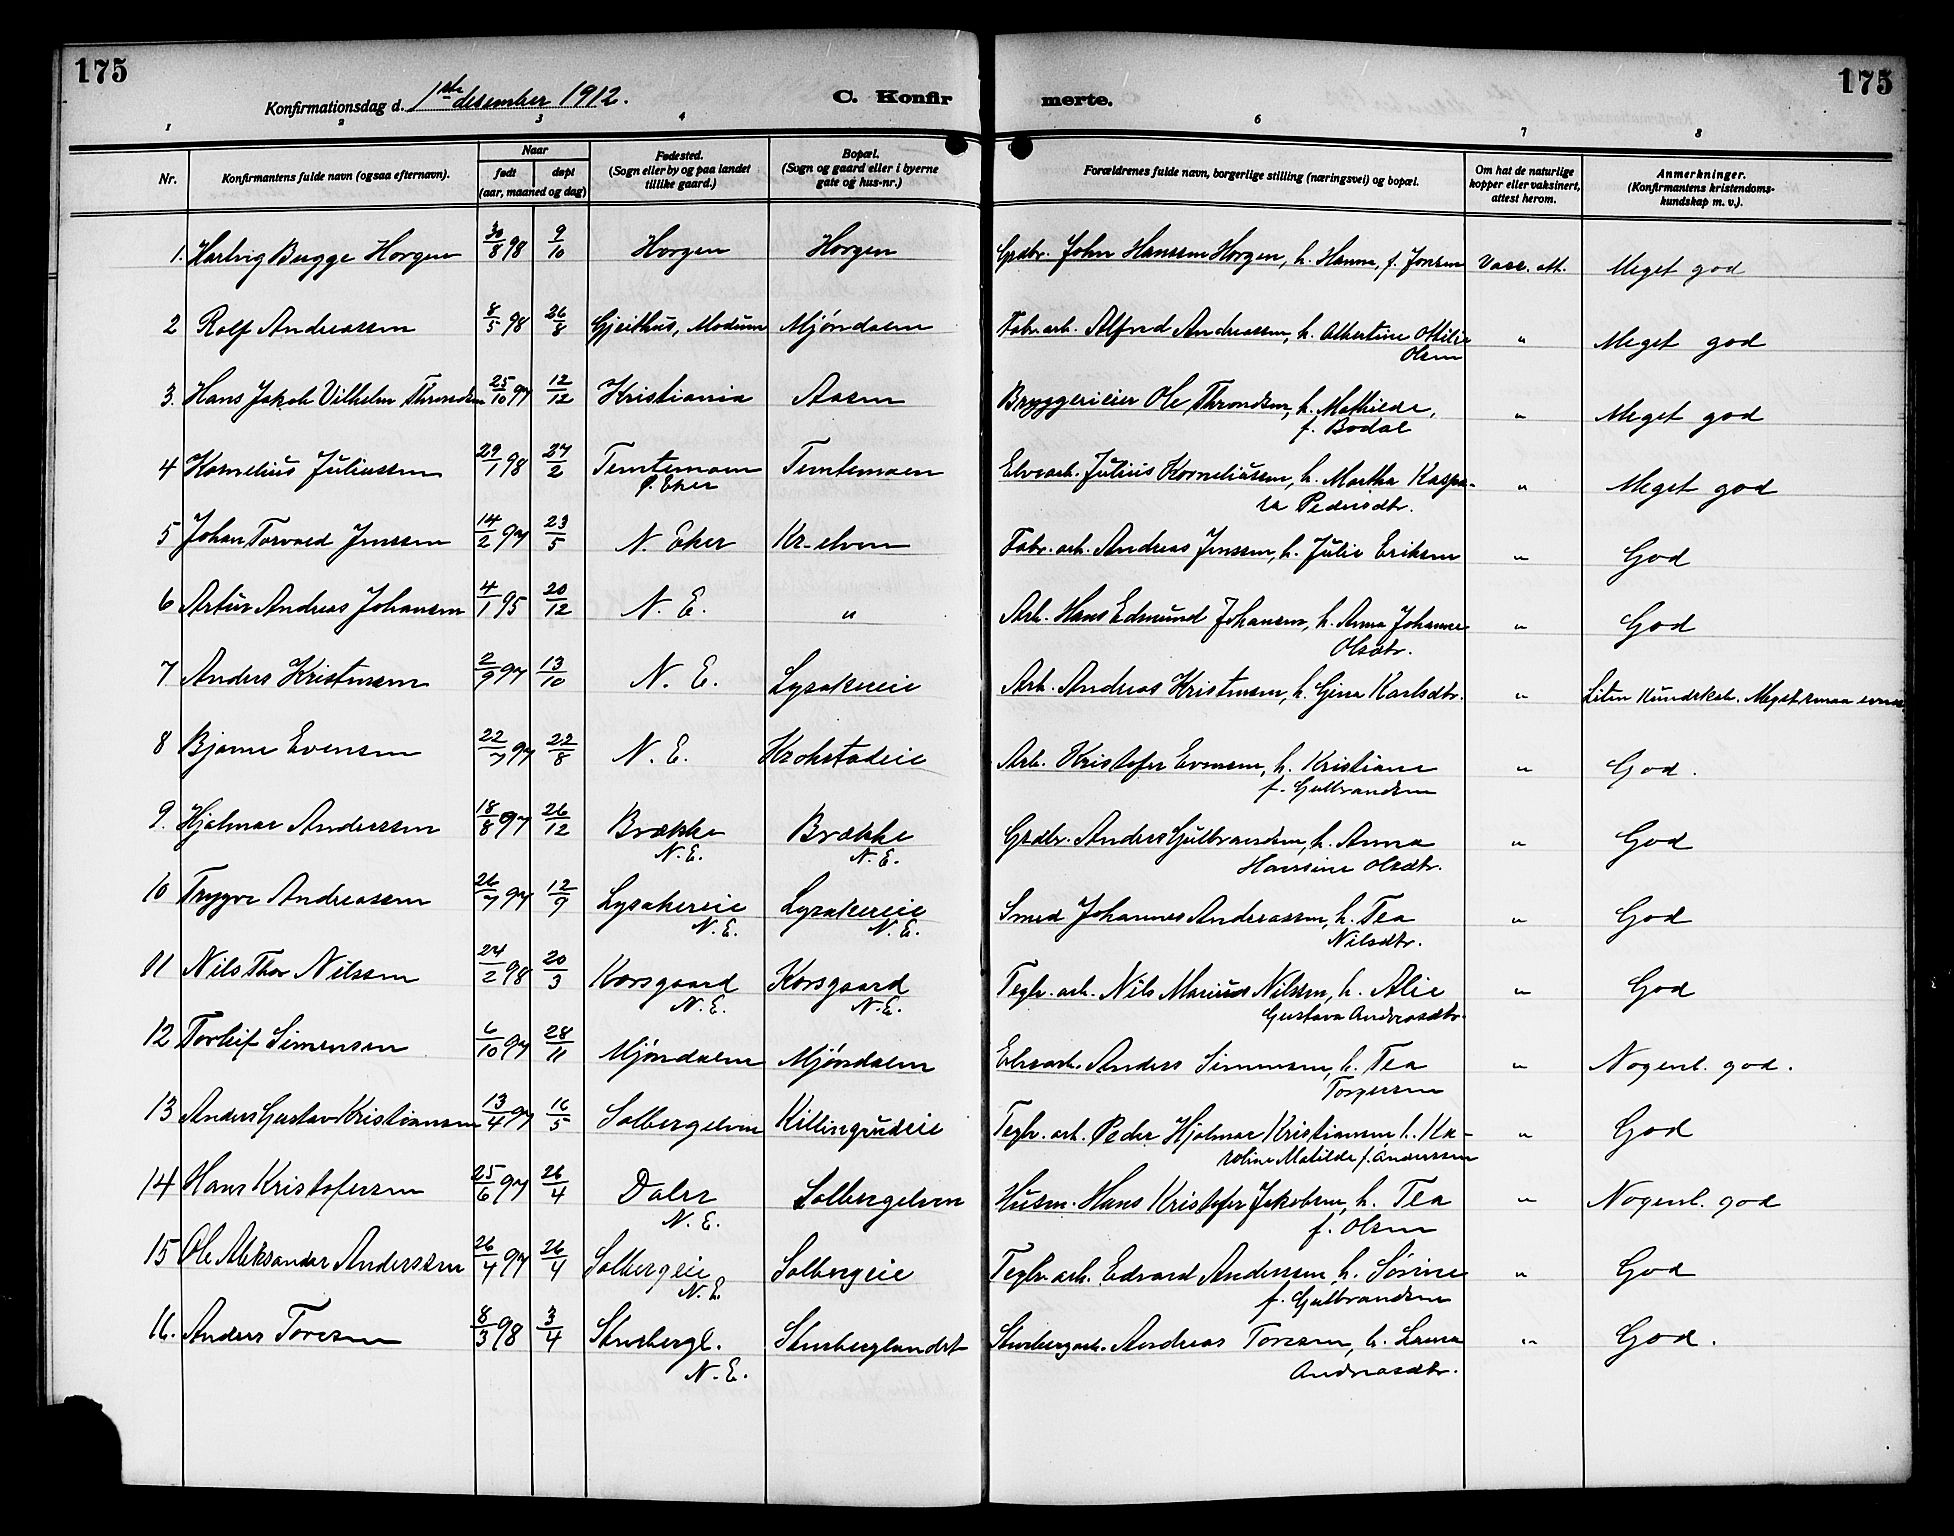 175
175
Konfirmationsdag d. 1ste desember 1912.
C. Konfir
merte.
1 2 3 4 6 7 8
Nr.
Konfirmantens fulde navn (ogsaa efternavn).
Naar
født
døpt
(aar, maaned og dag)
Fødested.
(Sogn eller by og paa landet
tillike gaard.)
Bopæl.
(Sogn og gaard eller i byerne
gate og hus-nr.)
Forældrenes fulde navn, borgerlige stilling (næringsvei) og bopæl.
Om hat de naturlige
kopper eller vaksinert,
attest herom.
Anmerkninger.
(Konfirmantens kristendoms-
kundskap m. v.).
1. Hartvig Bugge Horgen 30/8 98 9/10 Horgen Horgen Grdbr. John Hanssen Horgen, h. Hanna, f. Jonsen Vacc. att. Meget god
2 Rolf Andreassen 8/5 98 26/8 Gjeithus, Modum Mjøndalen Fabr. arb. Alfred Andreassen, h. Albertine Ottilie Meget god
Olsen "
3. Hans Jakob Vilhelm Throndsen 25/10 97 12/12 Kristiania Aasen Bryggerieier Ole Throndsen, h. Mathilde, " Meget god
f. Bodal
4 Kornelius Juliussen 29/1 98 27/2 Temtemoen Temtemoen Elvearb. Julius Korneliussen, h. Martha Kaspa- " Meget god
Ø. Eker ra Pedersdtr.
5 Johan Torvald Jenssen 14/2 97 23/5 N. Eker Kr-elven Fabr. arb. Andreas Jenssen, h. Julie Eriksen " God
6 Artur Andreas Johansen 4/1 95 20/12 N. E. " Arb. Hans Edmund Johansen, h. Anna Johanne " God
Olsdtr.
7 Anders Kristensen 2/9 97 13/10 N. E. Lysakereie Arb. Andreas Kristensen, h. Gina Karlsdtr. " Liten kundskab. Meget smaa evner
8 Bjarne Evensen 22/7 97 22/8 N. E. Krokstadeie Arb. Kristofer Evensen, h. Kristiane " God.
f. Gulbrandsen
9. Hjalmar Anderssen 18/8 97 26/12 Brække Brække Grdbr. Anders Gulbrandsen, h. Anna " God
N. E. N. E. Hansine Olsdtr.
10 Trygve Andreassen 26/7 97 12/9 Lysakereie Lysakereie Smed Johannes Andreassen, h. Tea " God
N. E. N. E. Nilsdtr.
11 Nils Thor Nilssen 24/2 98 20/3 Korsgaard Korsgaard Teglv. arb. Nils Marius Nilssen, h. Alie " God
N. E. N. E. Gustava Andreasdtr.
12 Torleif Simensen 6/10 97 28/11 Mjøndalen Mjøndalen Elvearb. Anders Simensen, h. Tea " Nogenl. god.
Torgersen
13 Anders Gustav Kristiansen 13/4 97 16/5 Solbergelven Killingrudeie Teglv. arb. Peder Hjalmar Kristiansen, h. Ka- " God
roline Matilde f. Anderssen
14 Hans Kristofersen 25/6 97 26/4 Daler Solbergelven Husm. Hans Kristofer Jakobsen, h. Tea " Nogenl. god
N. E. f. Olsen
15 Ole Aleksander Anderssen 26/4 97 26/4 Solbergeie Solbergeie Teglv. arb. Edvard Andersen, h. Sørine " God
N. E. f. Gulbrandsen
16. Anders Toresen 8/3 98 3/4 Stensbergl. Stensberglandet Stensbergarb. Andreas Toresen, h. Laura " God.
N. E. Andreasdtr.